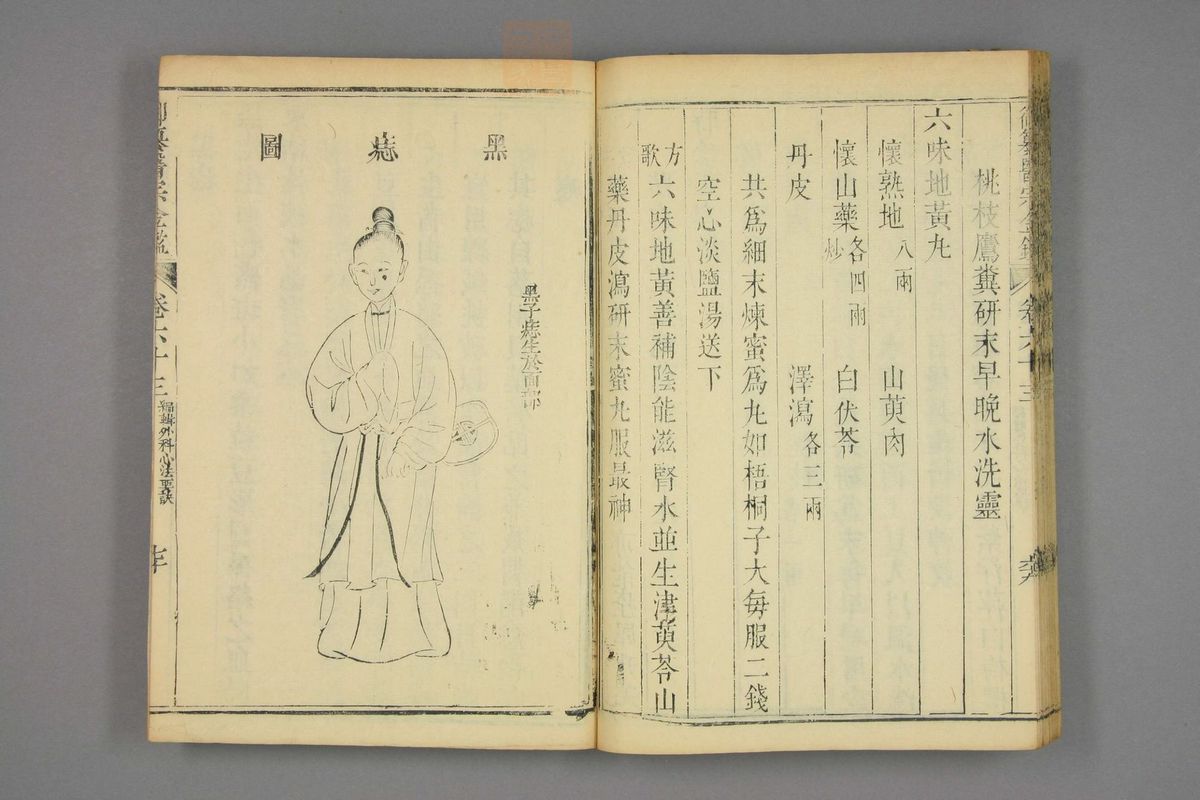 御纂醫宗金鑑 卷六十三
桃枝鷹糞研末早晚水洗靈
六味地黃丸
懷熟地八兩 山萸肉
懷山藥炒各四兩 白伏苓
丹皮 澤瀉各三兩
共爲細末煉蜜爲丸如梧桐子大每服二錢
空心淡鹽湯送下
方歌 六味地黃善補陰能滋腎水並生津萸苓山
藥丹皮瀉研末蜜丸服最神
黑痣圖
黑子痣生於面部
御纂醫宗金鑑 卷六十三 編輯外科心法要訣